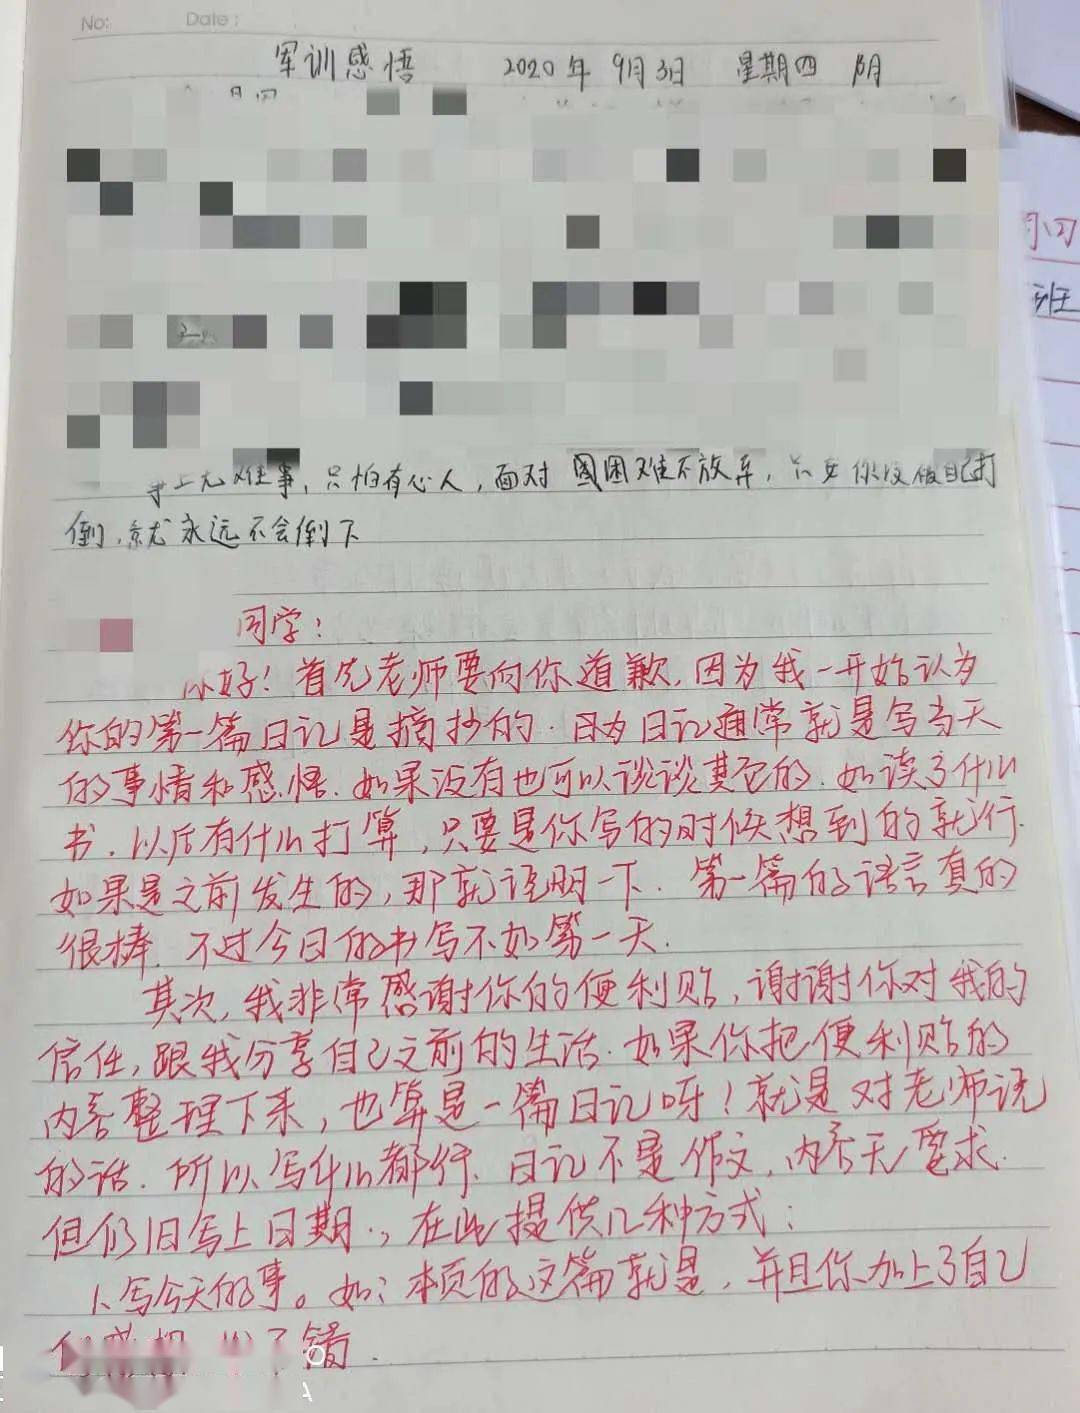 No: Date:
军训感悟 2020年9月3日 星期四 阴
事上无难事，只怕有心人，面对困难不放弃，只要你没被自己打
倒，就永远不会倒下
同学：
你好！首先老师要向你道歉，因为我一开始认为
你的第一篇日记是摘抄的．因为日记通常就是写当天
的事情和感悟．如果没有也可以谈谈其它的．如读了什么
书．以后有什么打算，只要是你写的时候想到的就行．
如果是之前发生的，那就说明一下．第一篇的语言真的
很棒．不过今日的书写不如第一天．
其次，我非常感谢你的便利贴，谢谢你对我的
信任，跟我分享自己之前的生活．如果你把便利贴的
内容整理下来，也算是一篇日记呀！就是对老师说
的话．所以写什么都行．日记不是作文，内容无要求．
但仍旧写上日期．，在此提供几种方式：
1、写今天的事。如：本页的这篇就是，并且你加上了自己
班